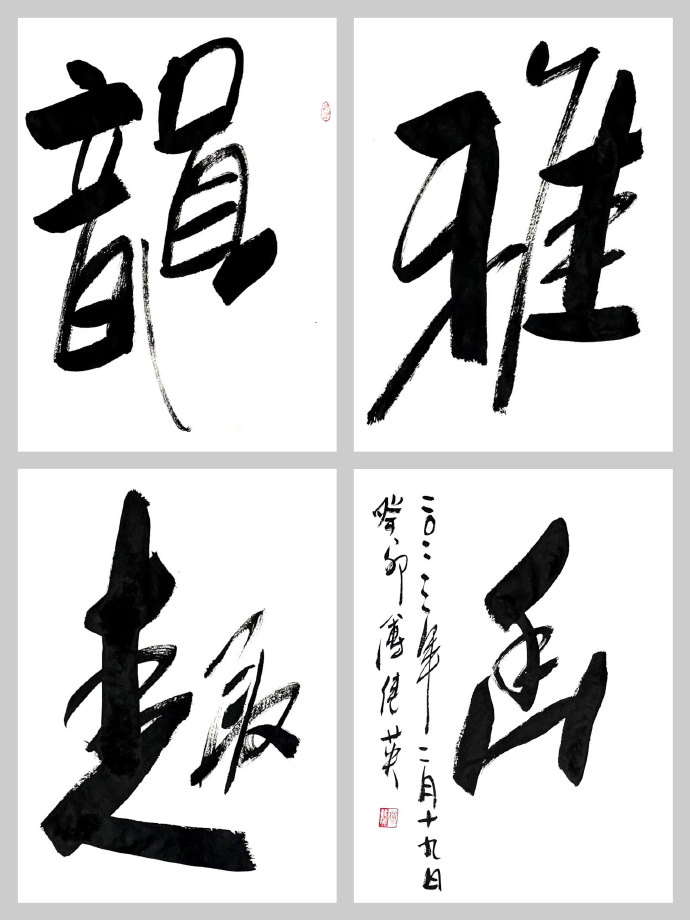 韻
雅
趣
幽
二〇二三年二月十九日
癸卯傅英